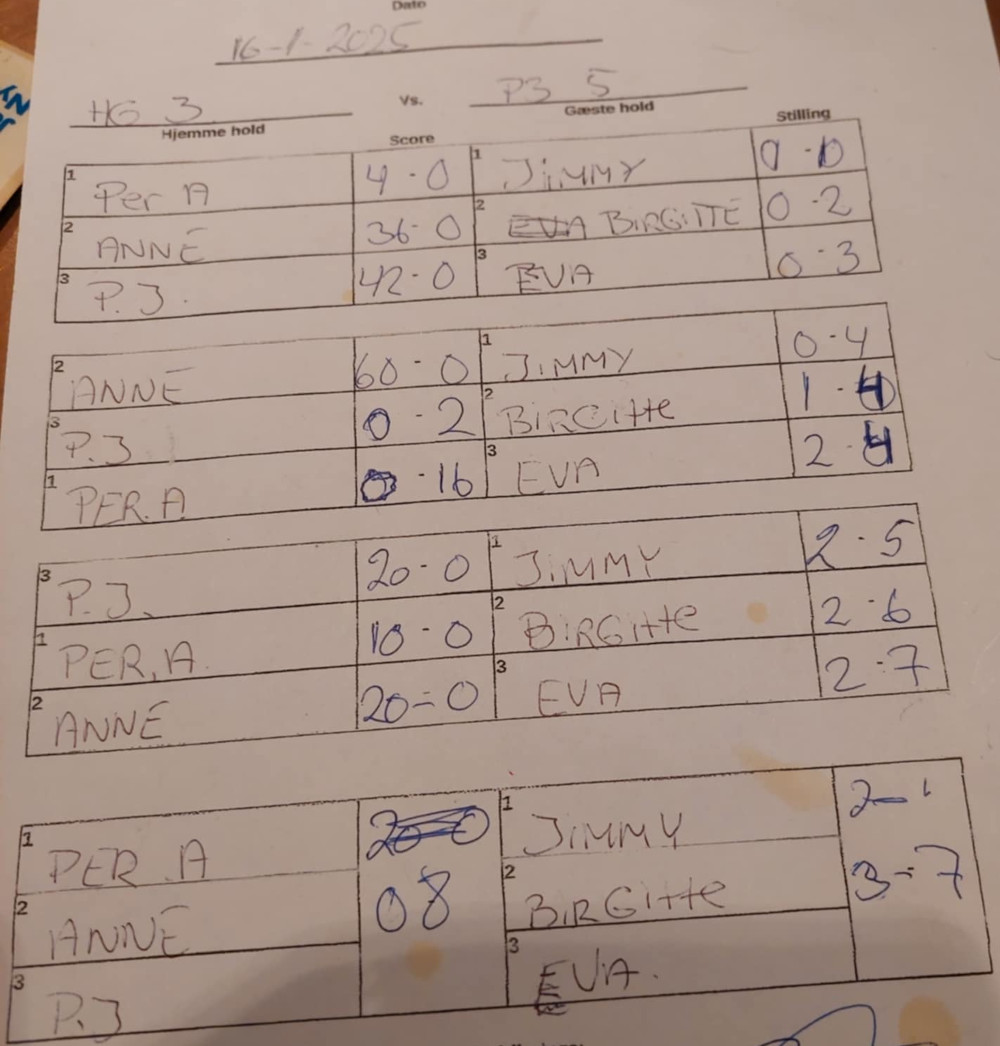 Dato
16-1-2025
HG 3 Vs. P3 5
Hjemme hold Gæste hold
Score Stilling
1 Per A 4-0 1 JiMMY 0-
2 ANNE 36-0 2 BiRGiTTE 0-2
3 P.J. 42-0 3 EVA 0-3
2 ANNE 60-0 1 JiMMY 0-4
3 P.J 0-2 2 BiRGitte 1-4
1 PER.A 0-16 3 EVA 2-4
3 P.J. 20-0 1 JiMMY 2-5
1 PER.A. 10-0 2 BiRGitte 2-6
2 ANNE 20-0 3 EVA 2-7
1 PER.A 20-0 1 JiMMY 2-
2 ANNE 08 2 BiRGitte 3-7
3 P.J 3 EVA.